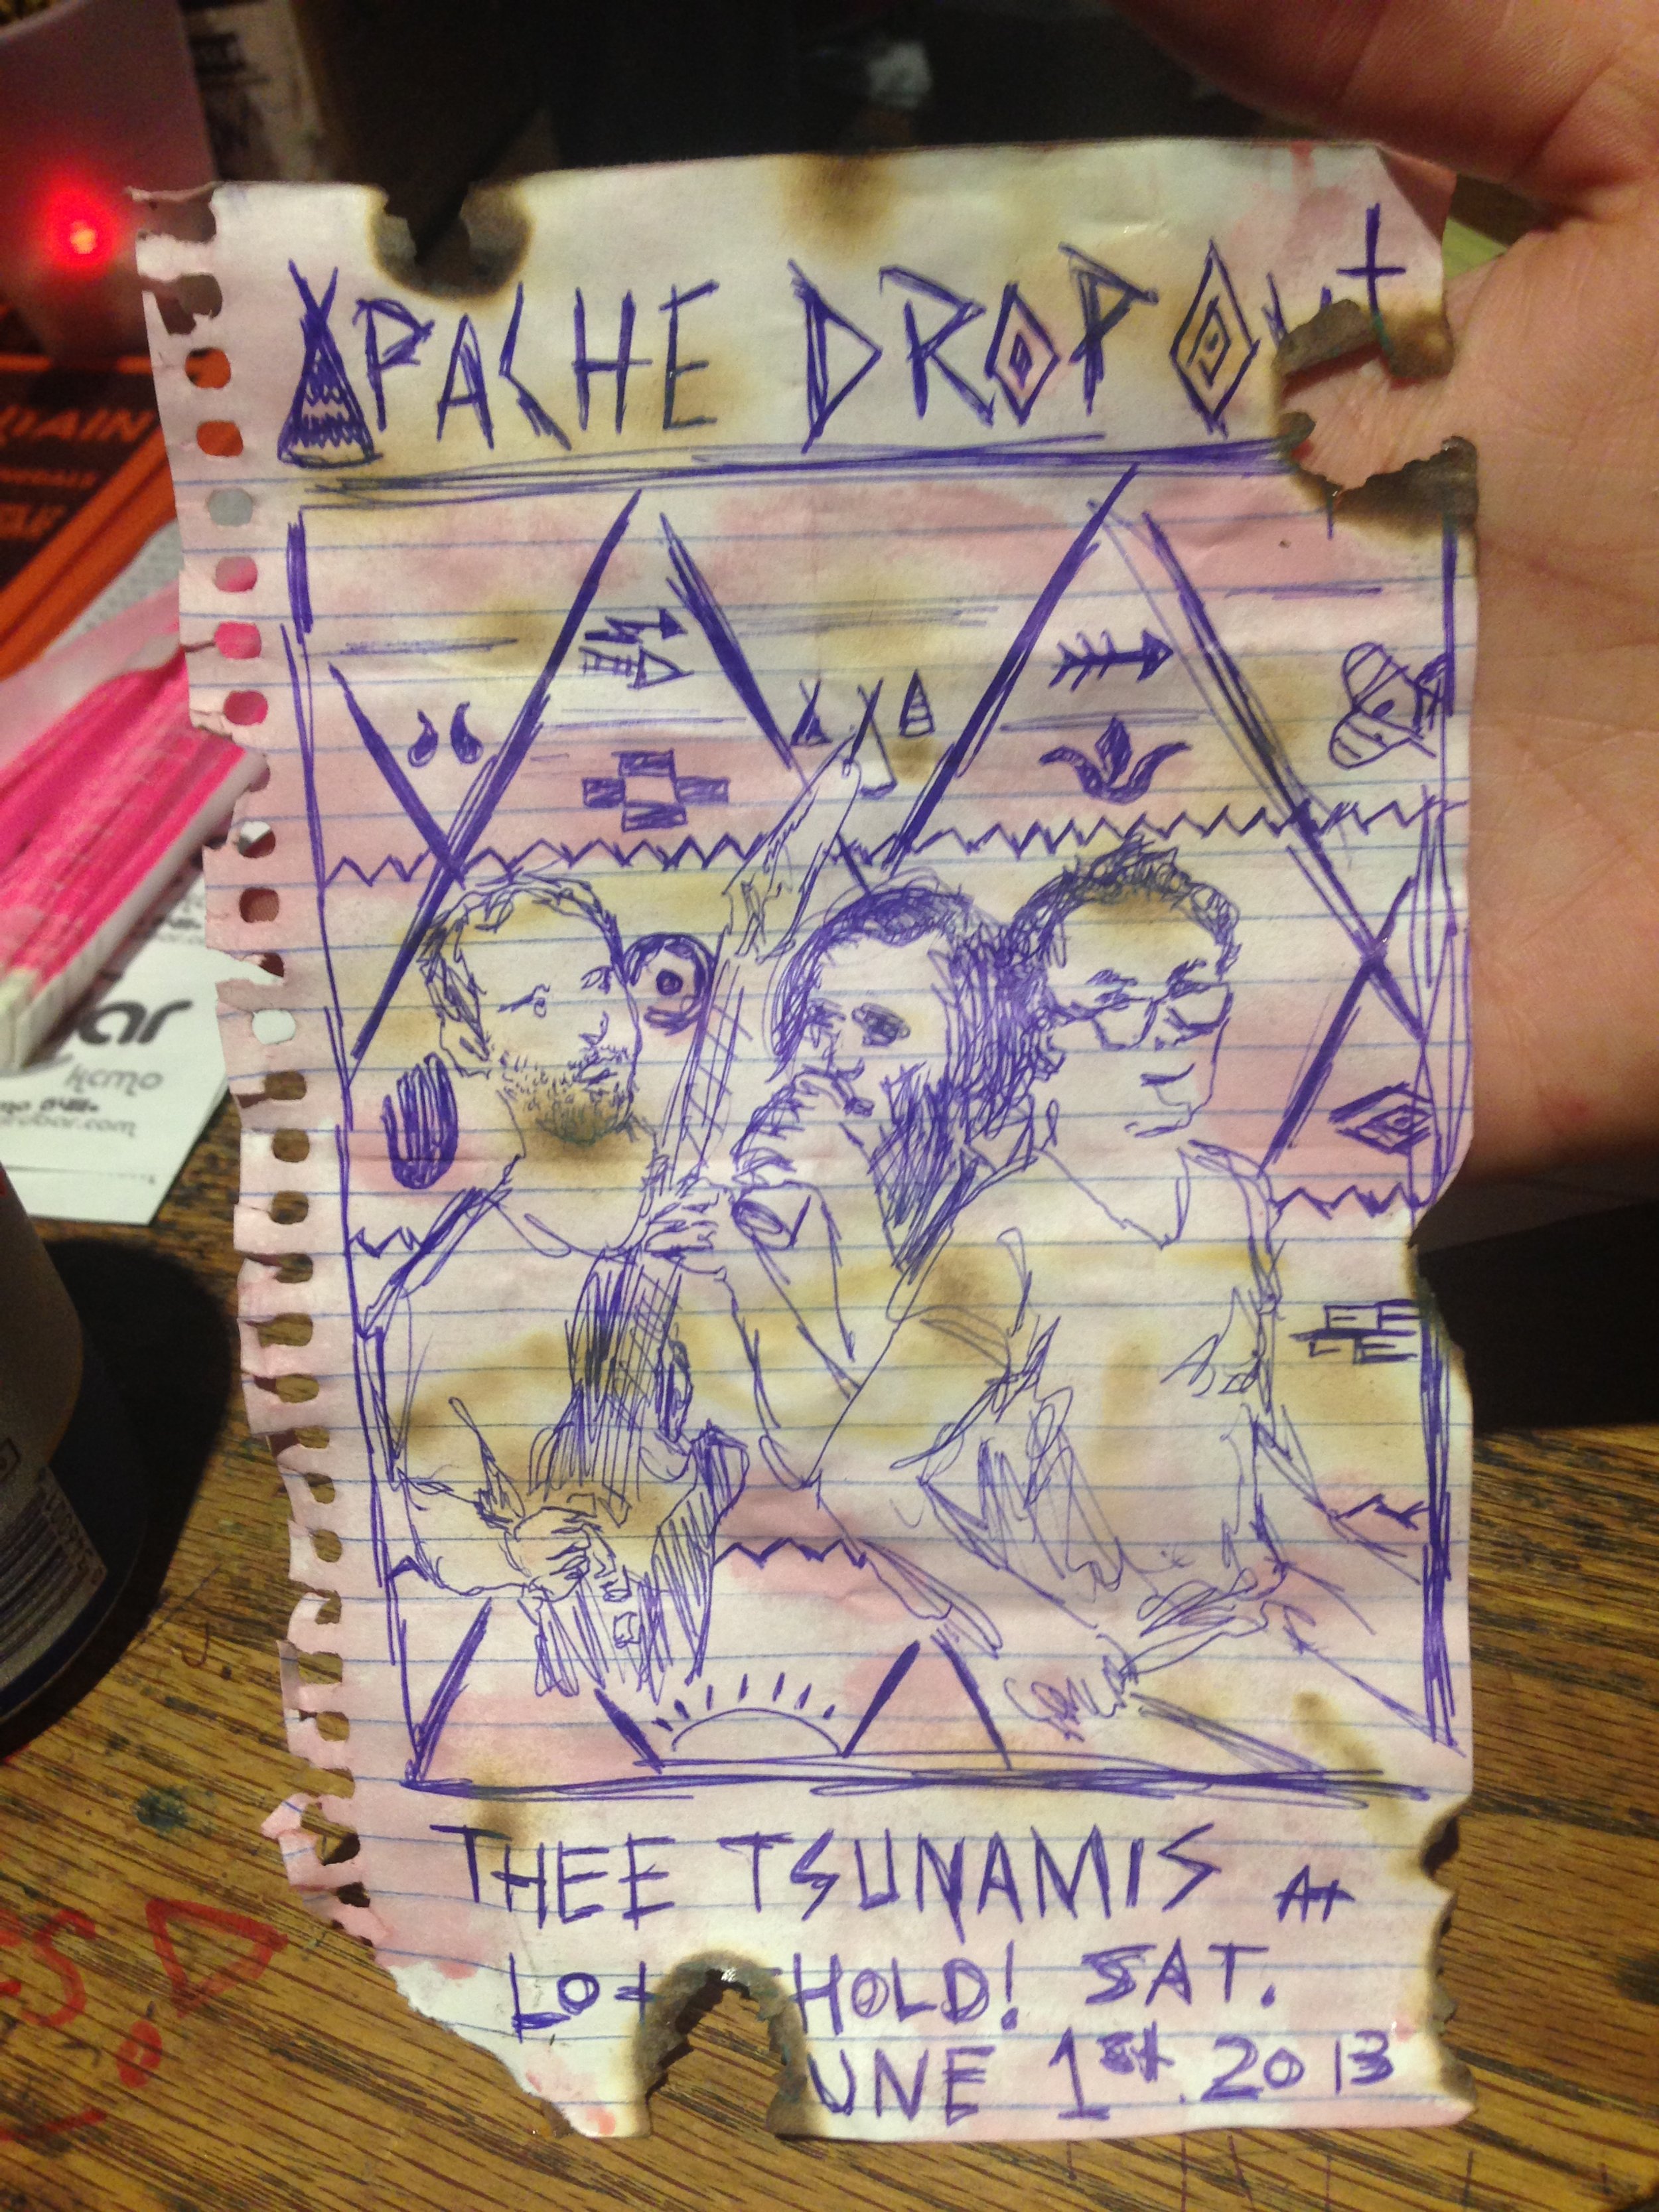 APACHE DROPOut
THEE TSUNAMIS At
HOLD! SAT.
UNE 1st 2013
ar
kcmo
bar.com